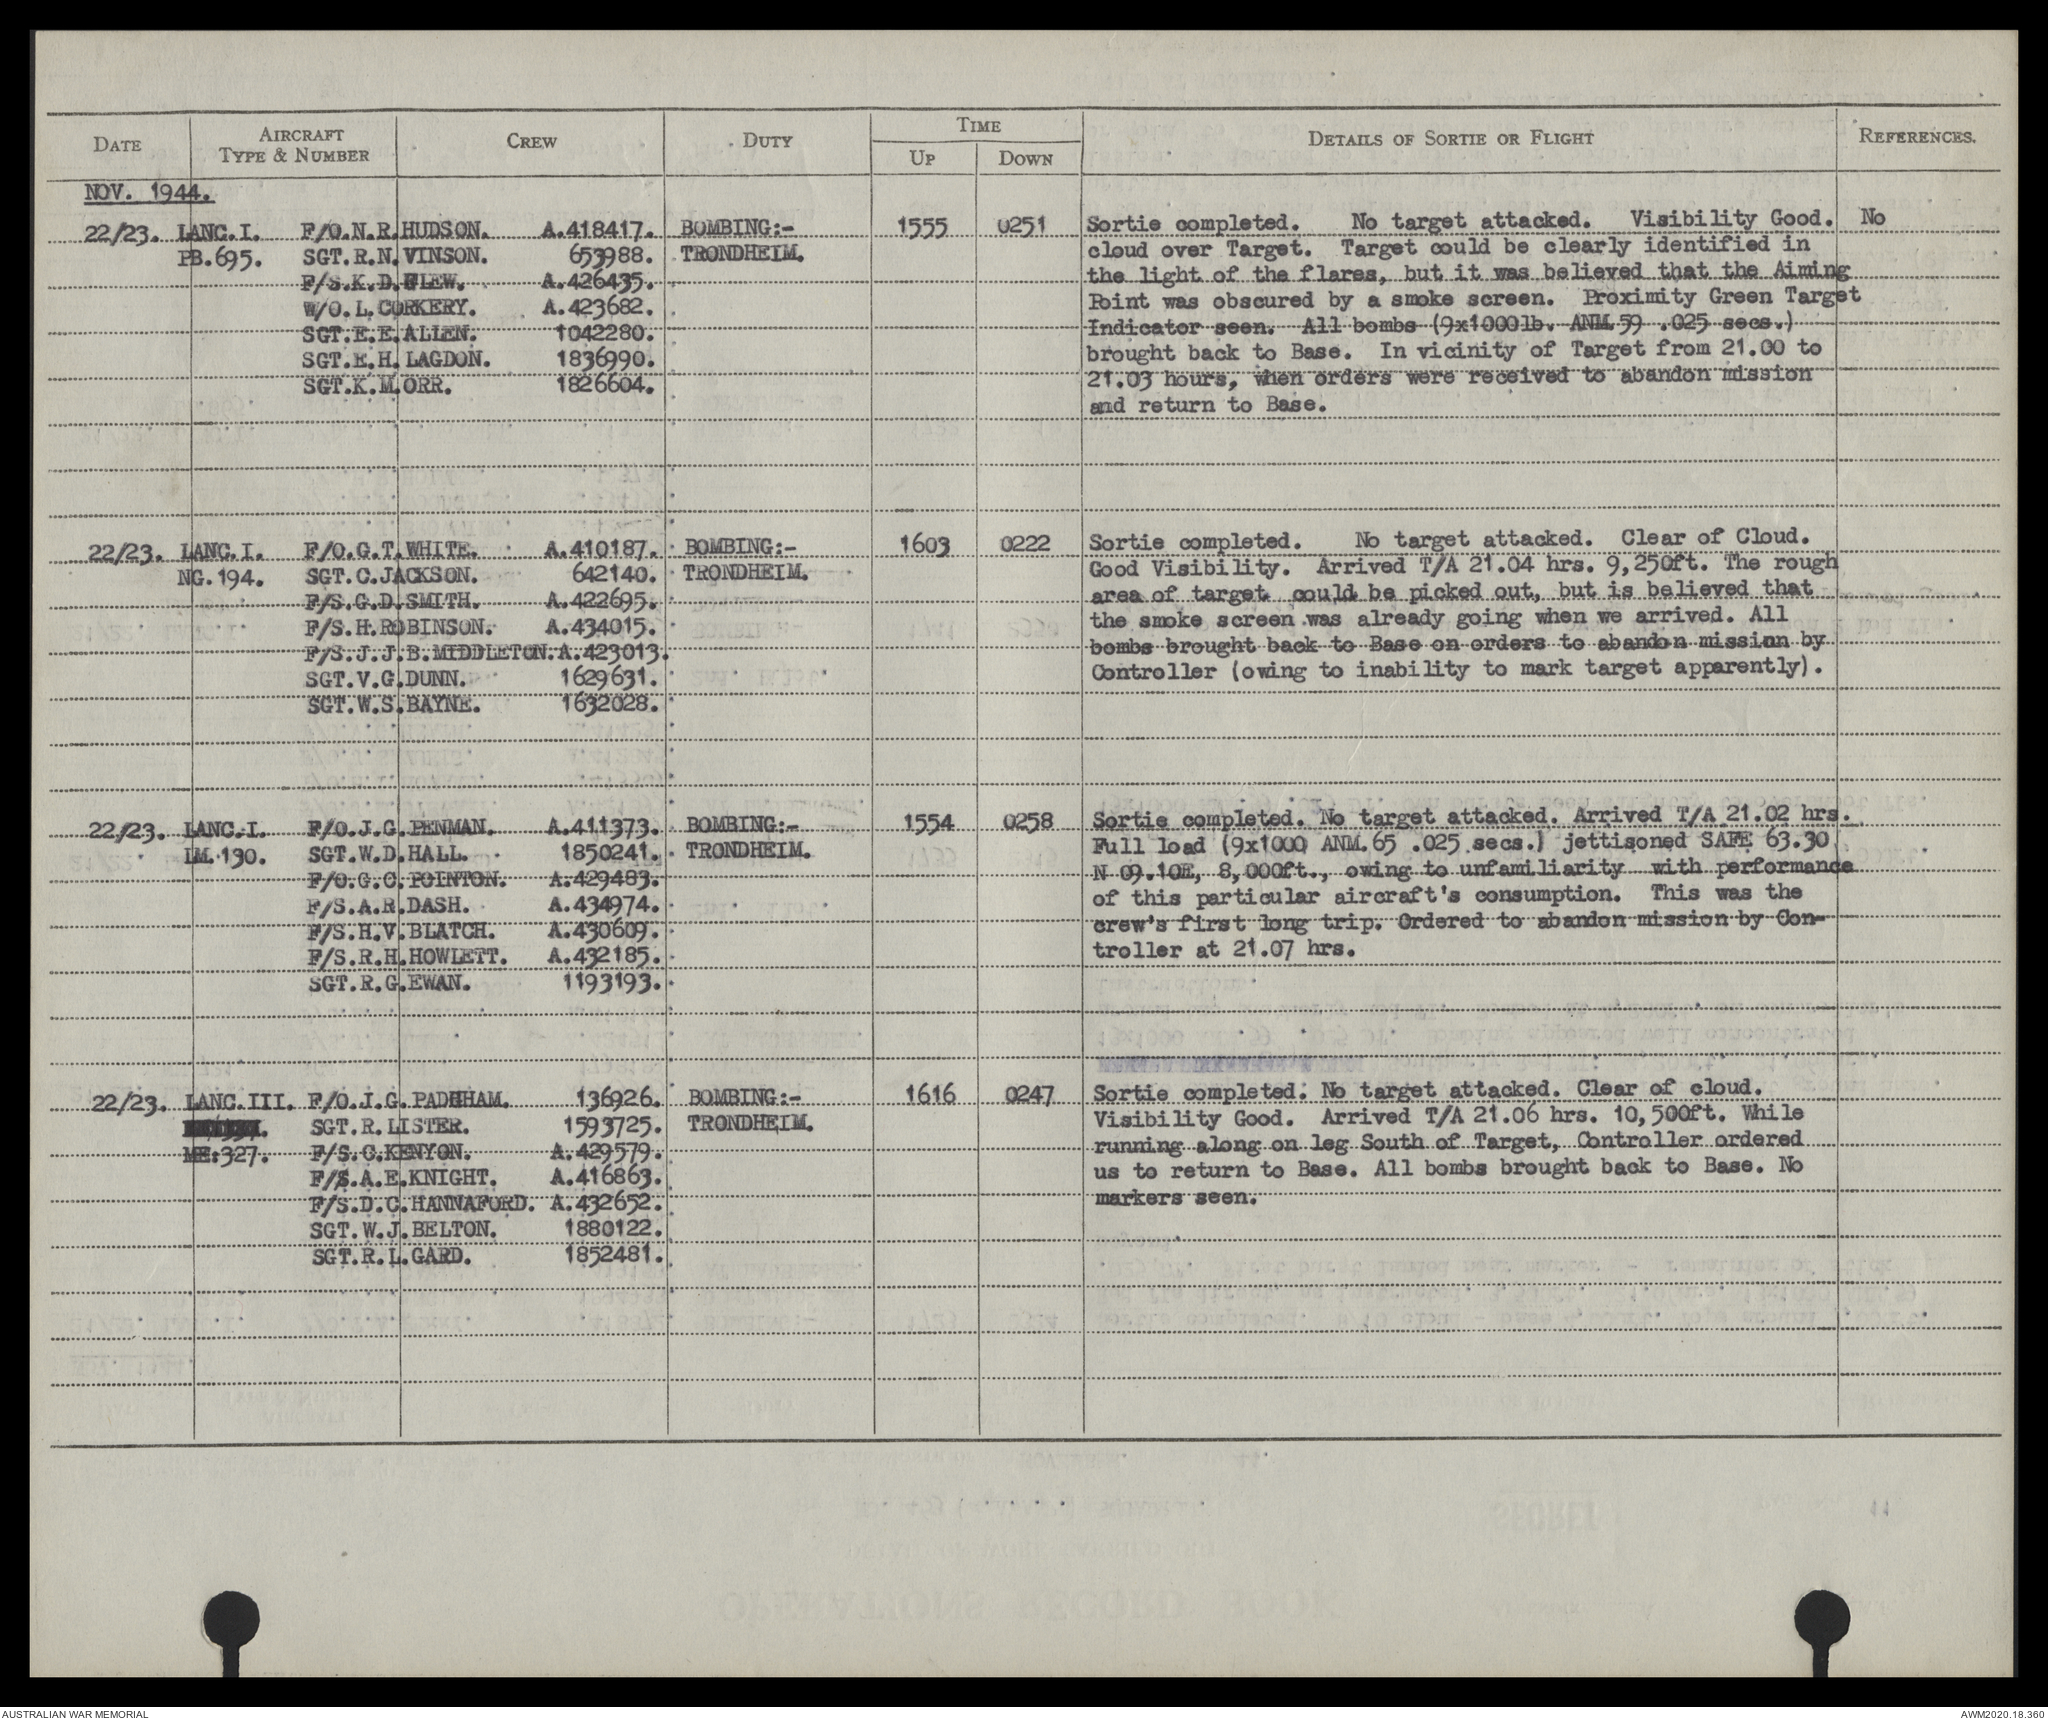 DATE AIRCRAFT TYPE & NUMBER CREW DUTY TIME UP DOWN DETAILS OF SORTIE OR FLIGHT REFERENCES.
NOV. 1944.
22/23. LANC.I. F/O.N.R.HUDSON. A.418417. BOMBING:- 1555 0251 Sortie completed. No target attacked. Visibility Good. No
PB.695. SGT.R.N.VINSON. 653988. TRONDHEIM. cloud over Target. Target could be clearly identified in
F/S.K.D.FLEW. A.426435. the light of the flares, but it was believed that the Aiming
W/O.L.CORKERY. A.423682. Point was obscured by a smoke screen. Proximity Green Target
SGT.E.E.ALLEN. 1042280. Indicator seen. All bombs (9x1000lb. ANM.59 .025 secs.)
SGT.E.H.LAGDON. 1836990. brought back to Base. In vicinity of Target from 21.00 to
SGT.K.M.ORR. 1826604. 21.03 hours, when orders were received to abandon mission
and return to Base.
22/23. LANC.I. F/O.G.T.WHITE. A.410187. BOMBING:- 1603 0222 Sortie completed. No target attacked. Clear of Cloud.
NG.194. SGT.C.JACKSON. 642140. TRONDHEIM. Good Visibility. Arrived T/A 21.04 hrs. 9,250ft. The rough
F/S.G.D.SMITH. A.422695. area of target could be picked out, but is believed that
F/S.H.ROBINSON. A.434015. the smoke screen was already going when we arrived. All
F/S.J.J.B.MIDDLETON.A.423013. bombs brought back to Base on orders to abandon mission by
SGT.V.G.DUNN. 1629631. Controller (owing to inability to mark target apparently).
SGT.W.S.BAYNE. 1632028.
22/23. LANC.I. F/O.J.G.PENMAN. A.411373. BOMBING:- 1554 0258 Sortie completed. No target attacked. Arrived T/A 21.02 hrs.
LM.130. SGT.W.D.HALL. 1850241. TRONDHEIM. Full load (9x1000 ANM.65 .025 secs.) jettisoned SAFE 63.30
F/O.G.C.POINTON. A.429483. N 09.10E, 8,000ft., owing to unfamiliarity with performance
F/S.A.R.DASH. A.434974. of this particular aircraft's consumption. This was the
F/S.H.V.BLATCH. A.430609. crew's first long trip. Ordered to abandon mission by Con-
F/S.R.H.HOWLETT. A.432185. troller at 21.07 hrs.
SGT.R.G.EWAN. 1193193.
22/23. LANC.III. F/O.J.G.PADHAM. 136926. BOMBING:- 1616 0247 Sortie completed. No target attacked. Clear of cloud.
SGT.R.LISTER. 1593725. TRONDHEIM. Visibility Good. Arrived T/A 21.06 hrs. 10,500ft. While
ME.327. F/S.C.KENYON. A.429579. running along on leg South of Target, Controller ordered
F/S.A.E.KNIGHT. A.416863. us to return to Base. All bombs brought back to Base. No
F/S.D.C.HANNAFORD. A.432652. markers seen.
SGT.W.J.BELTON. 1880122.
SGT.R.L.GARD. 1852481.
AUSTRALIAN WAR MEMORIAL AWM2020.18.360